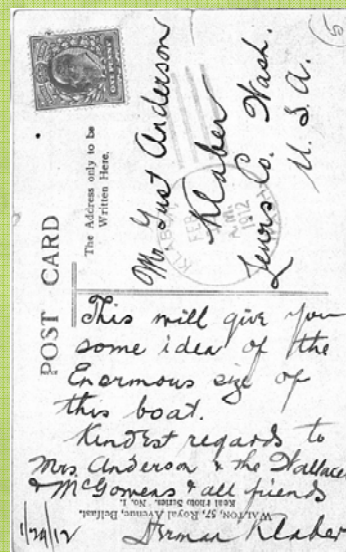 POST CARD
The Address only to be
Written Here.
Mr. Gust Anderson
Klaber
Lewis Co. Wash.
U. S. A.
KLABER
FEB
A.M.
1912
This will give you
some idea of the
Enormous size of
this boat.
Kindest regards to
Mrs. Anderson & the Wallaces
& McGowens & all friends
Herman Klaber
1/29/12
WALTON, 57, Royal Avenue, Belfast.
Real Photo Series. No. 1.
5